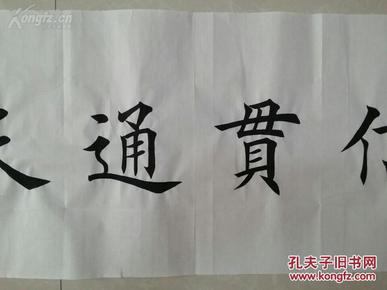 通貫
Kongfz.com
孔夫子旧书网
www.kongfz.com